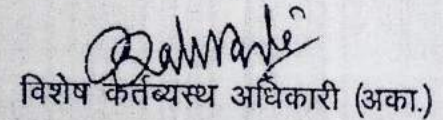 विशेष कर्तब्यस्थ अधिकारी (अका.)